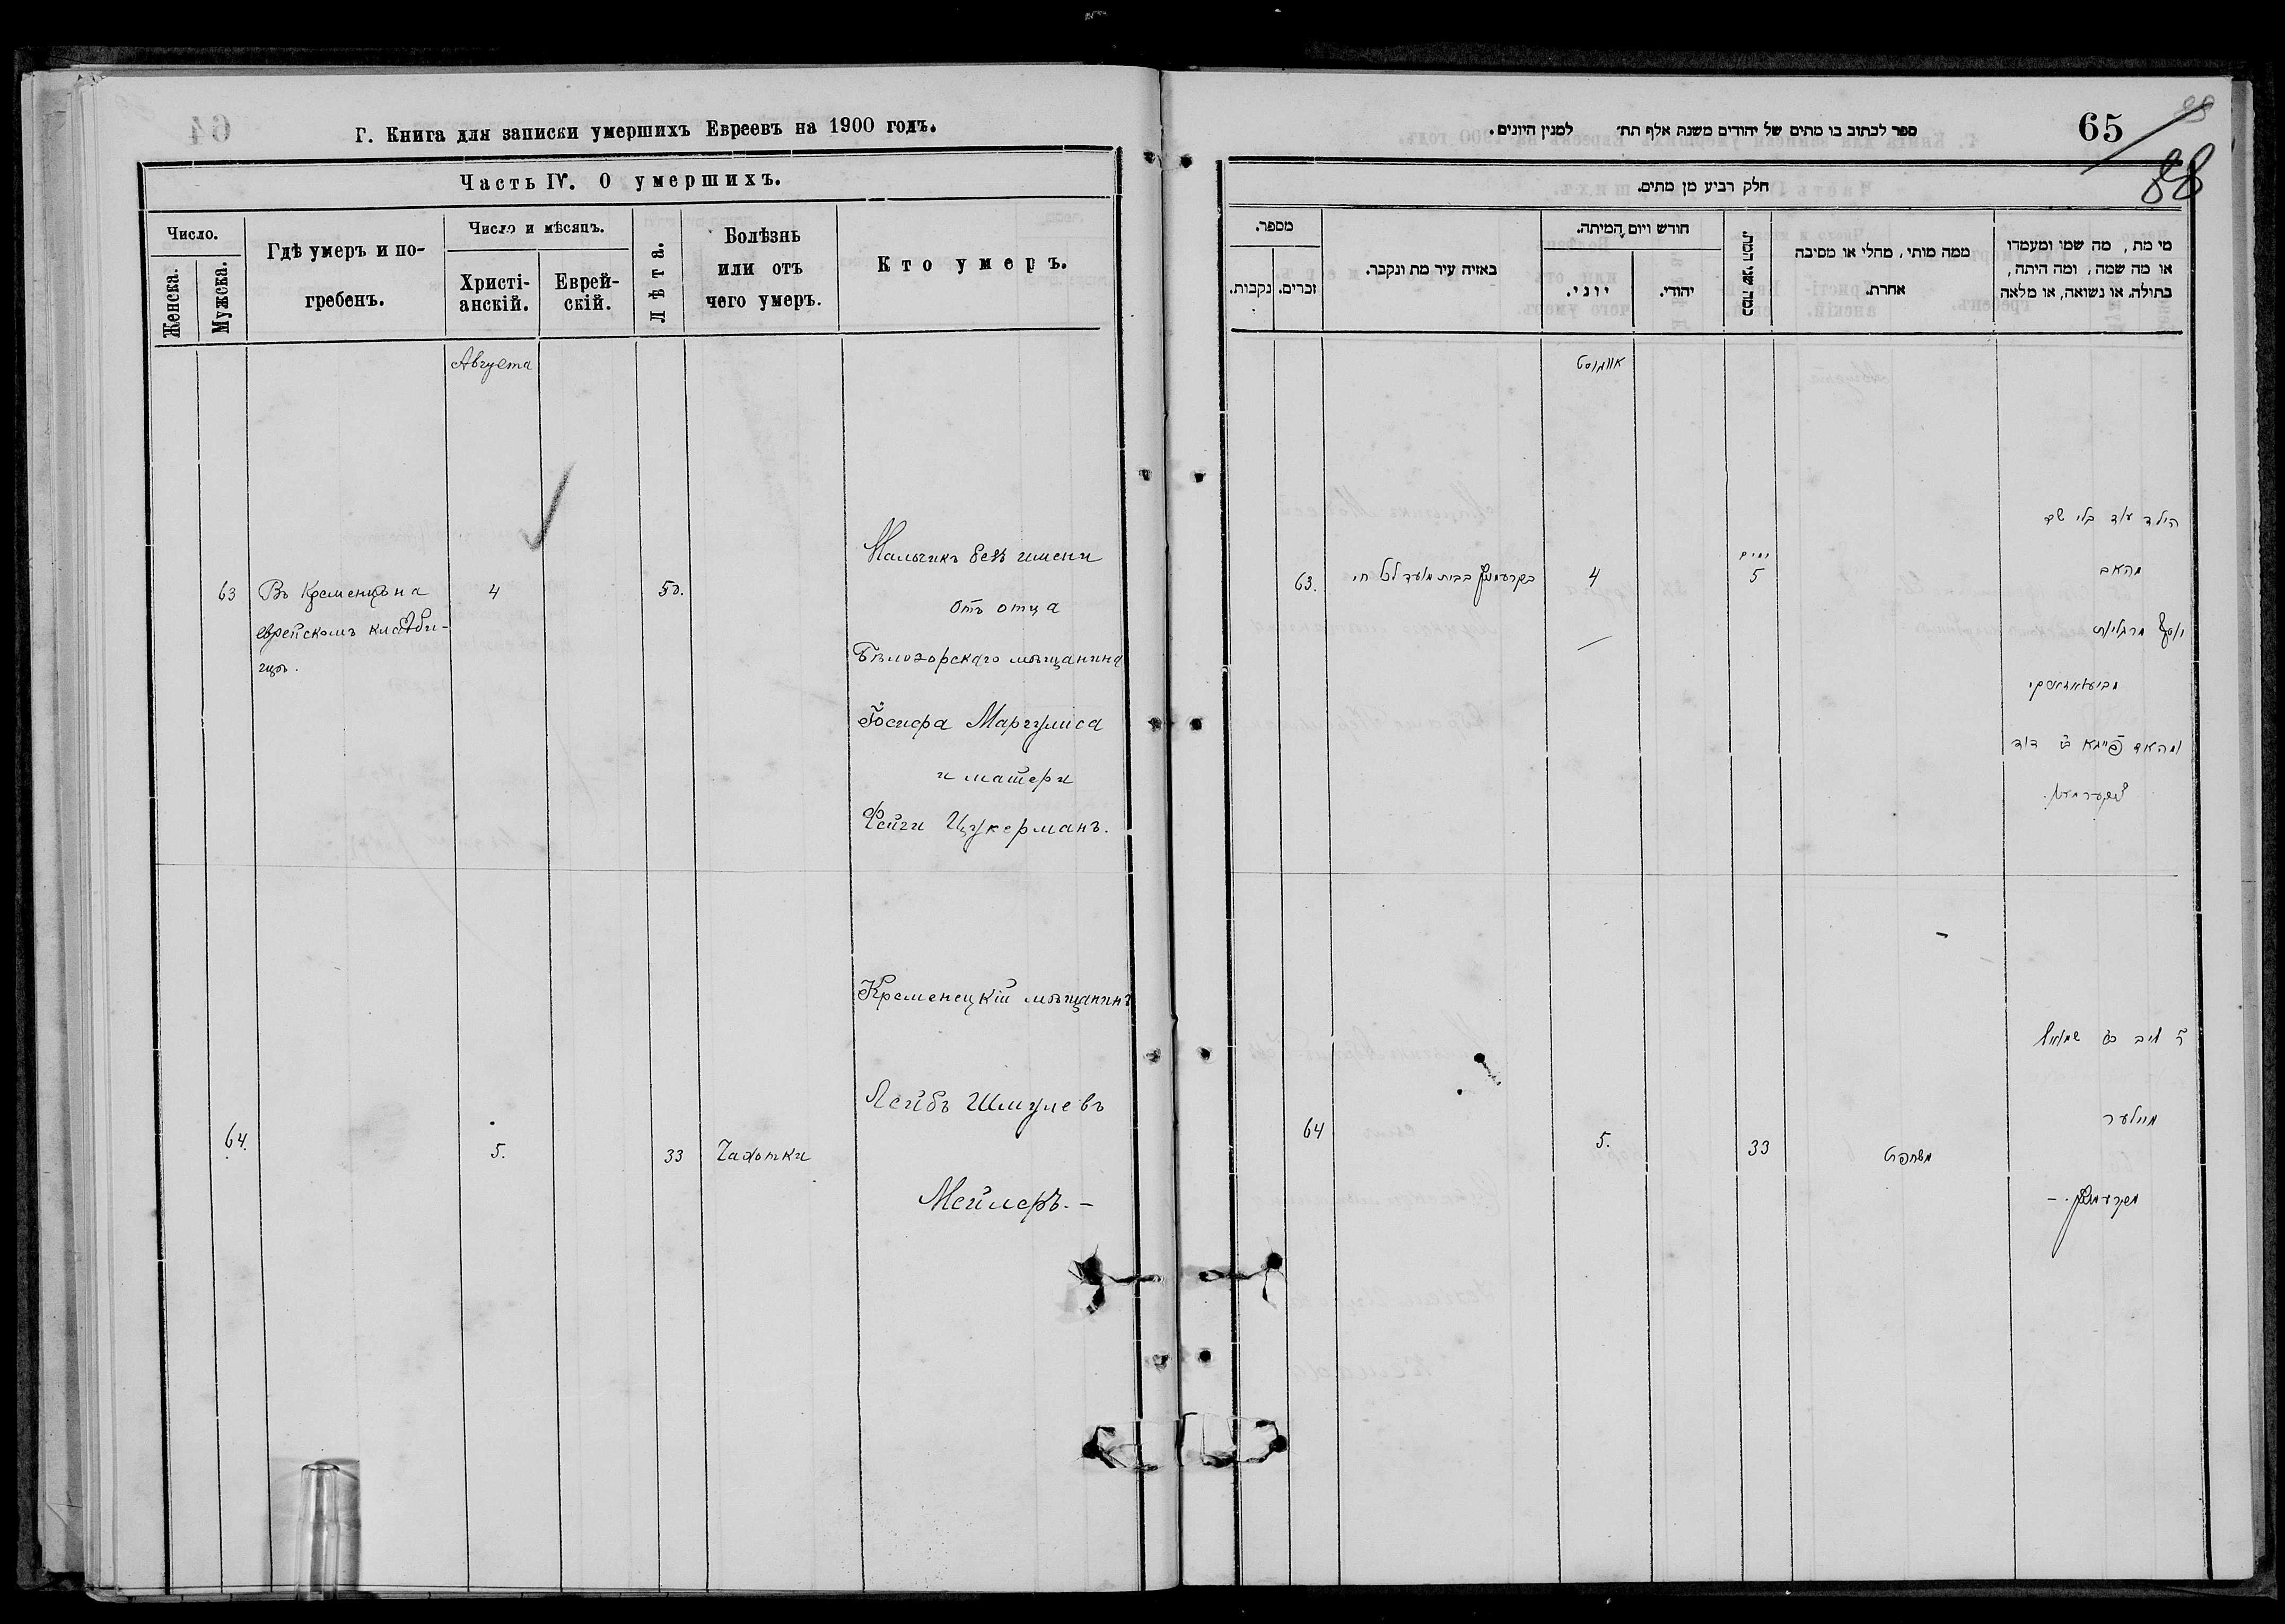 Г. Книга для записки умершихъ Евреевъ на 1900 годъ.
Часть IV. О умершихъ.
Число.
Женска.
Мужска.
Гдѣ умеръ и по-
гребенъ.
Число и мѣсяцъ.
Христі-
анскій.
Еврей-
скій.
Лѣта.
Болѣзнь
или отъ
чего умеръ.
Кто умеръ.
Августа
63
Въ Кременцѣ на
еврейскомъ кладби-
щѣ.
4
5 д.
Мальчикъ безъ имени
отъ отца
Бѣлозорскаго мѣщанина
Іосифа Маргулиса
и матери
Фейги Цукерманъ.
64.
5.
33
Чахотки
Кременецкій мѣщанинъ
Лейбъ Шмулевъ
Мейлеръ. –
65
88
ספר לכתוב בו מתים של יהודים משנת אלף תת׳ למנין היונים.
חלק רביע מן מתים.
מספר.
זכרים.
נקבות.
באיזה עיר מת ונקבר.
חודש ויום המיתה.
יוני.
יהודי.
כמה שני המת.
ממה מותי, מחלי או מסיבה
אחרת.
מי מת, מה שמו ומעמדו
או מה שמה, ומה היתה,
בתולה או נשואה, או מלאה
אווגוסט
63.
בקרעמניץ בבית מועד לכל חי
4
ימים
5
הילד עוד בלי שם
מהאב
יוסף מרגליות
ומהאם פייגא בת דוד
צוקערמאן.
64
5.
33
משחפת
ר׳ ליב בר׳ שמואל
מיילער
מקרעמניץ. –